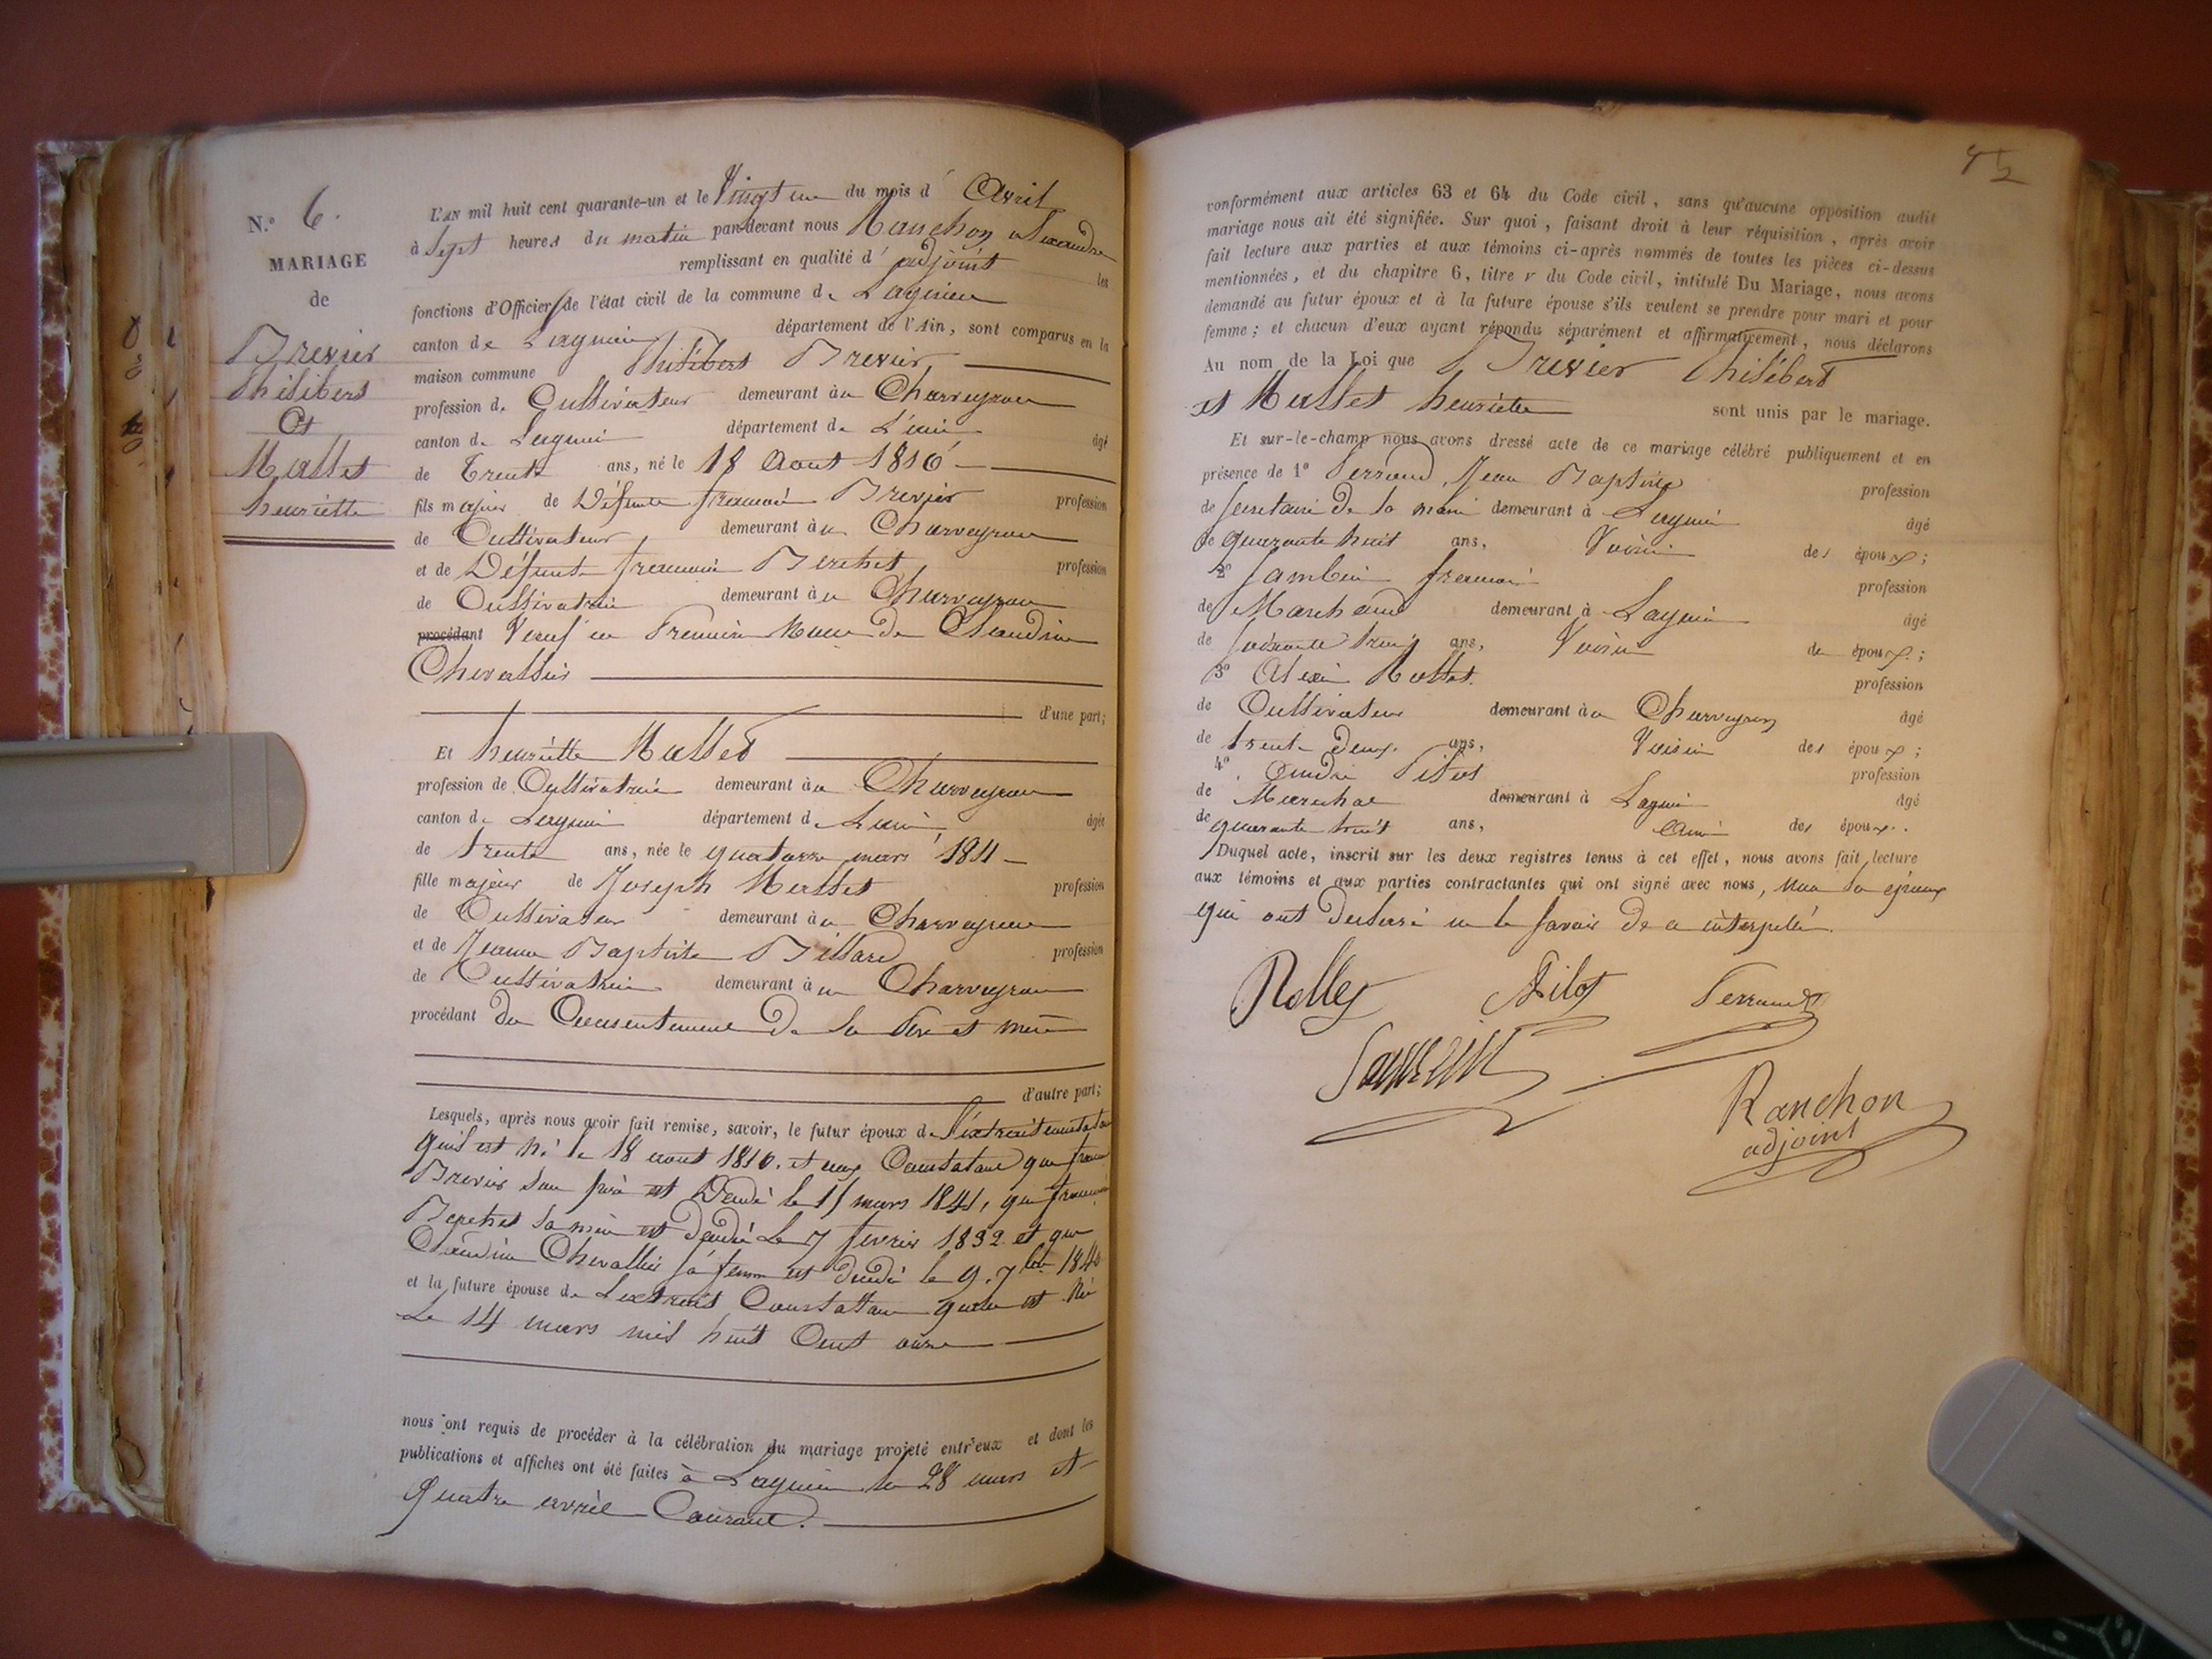 N.° 6.
MARIAGE
de
Brevier
Philibert
Et
Mallet
henriette
L'AN mil huit cent quarante-un et le Vingt un du mois d' Avril
à Sept heures du matin par-devant nous Ranchon alexandre
remplissant en qualité d' adjoint les
fonctions d'Officier de l'état civil de la commune de Lagnieu
canton de Lagnieu département de l'Ain, sont comparus en la
maison commune Philibert Brevier
profession de Cultivateur demeurant à Charveyron
canton de Lagnieu département de L'ain âgé
de trente ans, né le 18 Aout 1810
fils majeur de Défunt Brevier profession
de Cultivateur demeurant à Charveyron
et de Défunte Berthet profession
de Cultivatrice demeurant à Charveyron
procédant Veuf en de Claudine
Chevallier
d'une part;
Et henriette Mallet
profession de Cultivatrice demeurant à Charveyron
canton de Lagnieu département de Lain âgée
de trente ans, née le quatorze mars 1811
fille majeur de Joseph Mallet profession
de Cultivateur demeurant à Charveyron
et de Jeanne Baptiste Billard profession
de Cultivatrice demeurant à Charveyron
procédant du Consentement de Son Pere et mère
d'autre part;
Lesquels, après nous avoir fait remise, savoir, le futur époux de l'extrait
qu'il est né le 18 aout 1810. et Constatant que
Brevier Son père est Décédé le mars 1841, que
Berthet Sa mère est décédé Le 7 fevrier 1832 et que
Claudine Chevallier sa femme est decedé le 9. 7bre 1840
et la future épouse de Lextrait Constatant quelle est Né
Le 14 mars mil huit Cent onze
nous ont requis de procéder à la célébration du mariage projeté entr'eux et dont les
publications et affiches ont été faites à Lagnieu le 28 mars et
Quatre avril Courant.
42
conformément aux articles 63 et 64 du Code civil, sans qu'aucune opposition audit
mariage nous ait été signifiée. Sur quoi, faisant droit à leur réquisition, après avoir
fait lecture aux parties et aux témoins ci-après nommés de toutes les pièces ci-dessus
mentionnées, et du chapitre 6, titre v du Code civil, intitulé Du Mariage, nous avons
demandé au futur époux et à la future épouse s'ils veulent se prendre pour mari et pour
femme; et chacun d'eux ayant répondu séparément et affirmativement, nous déclarons
Au nom de la Loi que Brevier Philibert
et Mallet henriette sont unis par le mariage.
Et sur-le-champ nous avons dressé acte de ce mariage célébré publiquement et en
présence de 1° Ferrand Jean Baptiste profession
de Secretaire De la mairie demeurant à Lagnieu âgé
de quarante huit ans, Voisin des époux;
2° Jambin profession
de Marchand demeurant à Lagnieu âgé
de Soixante trois ans, Voisin de époux;
3° Rollet. profession
de Cultivateur demeurant à Charveyron âgé
de trente deux ans, Voisin des époux;
4° André Pilot profession
de Marechal demeurant à Lagnieu âgé
de quarante huit ans, Ami des époux.
Duquel acte, inscrit sur les deux registres tenus à cet effet, nous avons fait lecture
aux témoins et aux parties contractantes qui ont signé avec nous,
qui ont declaré ne le Savoir De ce interpellé.
Rollet Pilot Ferrand
Ranchon
adjoint